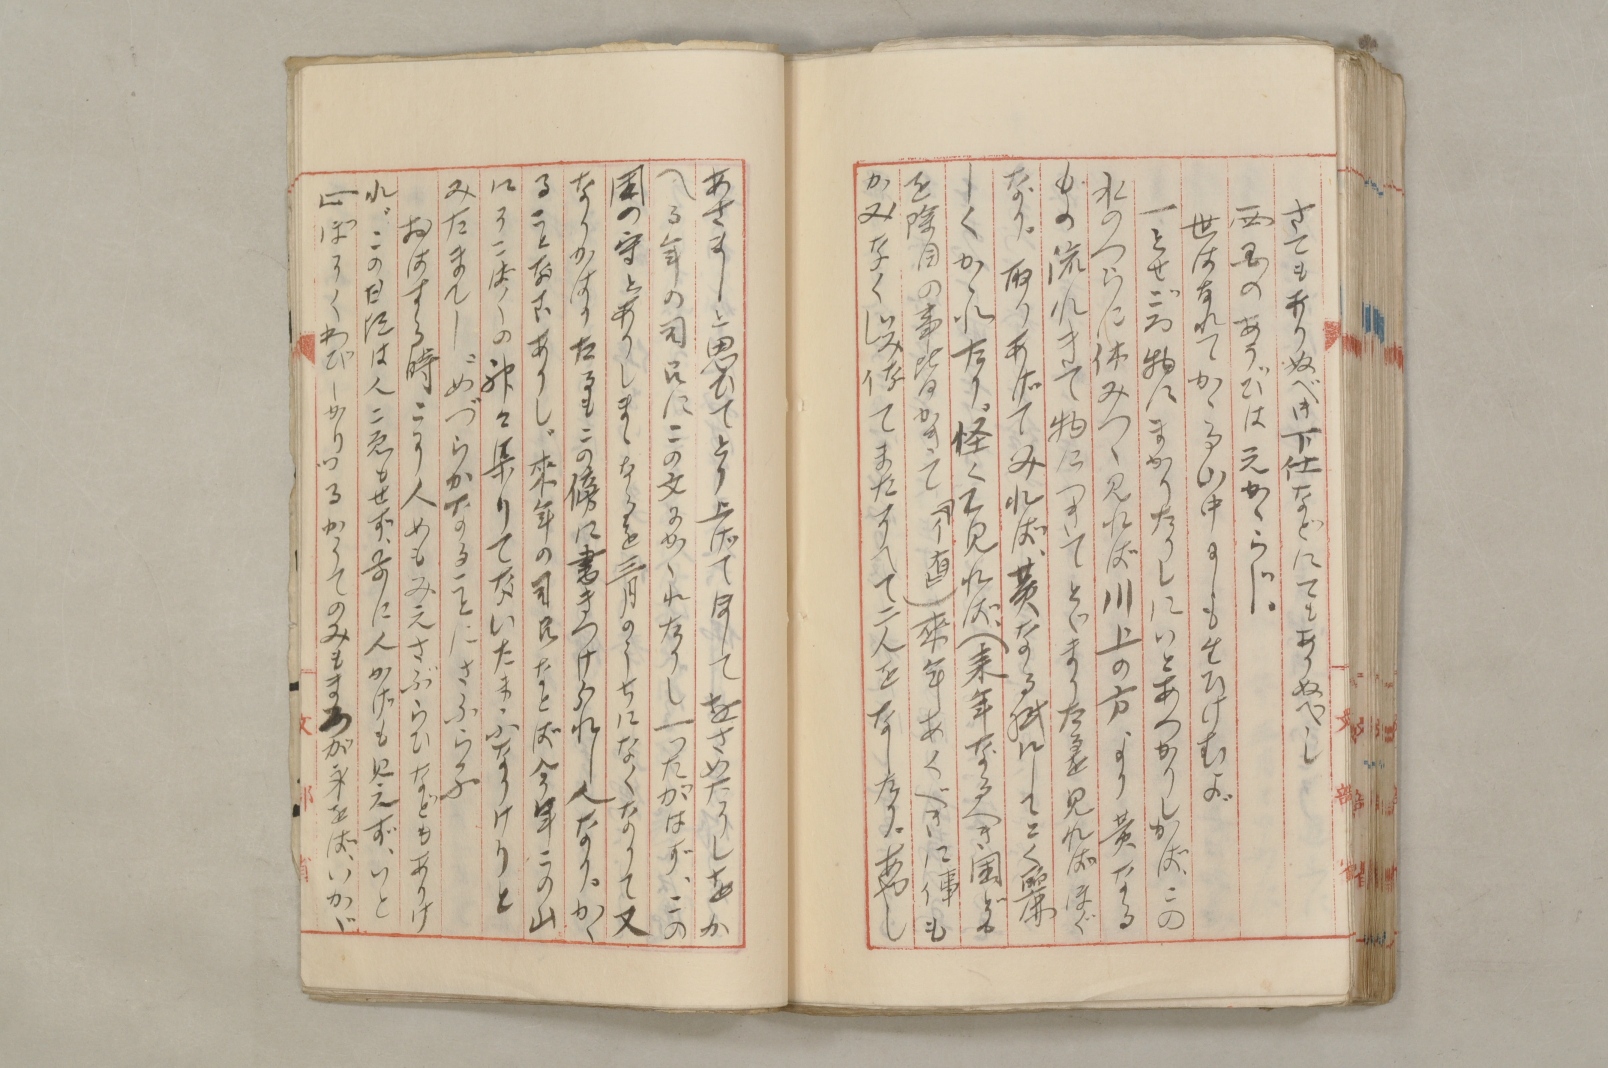 さても有りぬべき下仕などにてもありぬべし
世はなれてかゝる山中
一とせごろ物にまかりたりしにいとあつかりしかば、この
水のつらに休みつゝ見れば川上の方より黄なる
もの流れきて物につきてとゞまりたるを見ればほぐ
なり。取りあげてみれば、黄なる紙にして
しくかゝれたり。怪くて見れば、(来年なるべき国ども
を除目の事皆かきて
かみなくしみ侍てまたすへて二人をなしたり。あやし
あさましと思ひてとり上げてほしてをさめたりしをか
へる年の司召にこの文にかゝれたりし一つたがはず、この
国の守とありしまゝなるを三月のうちになくなりて又
なりかはりたるもこの傍に書きつけられし人なり。かゝ
ることなむありし、来年の司召などは今年この山
にそこばくの神々集りてないたまふなりけりと
みたまへし、めづらかなることにさふらふ
おはする時こそ人めもみえさぶらひなどもありけ
れ、この日頃は人ごゑもせず、前に人かげも見えず、いと
心ぼそくわびしかりつるかうてのみもまろが身をば、いかゞ
文部省